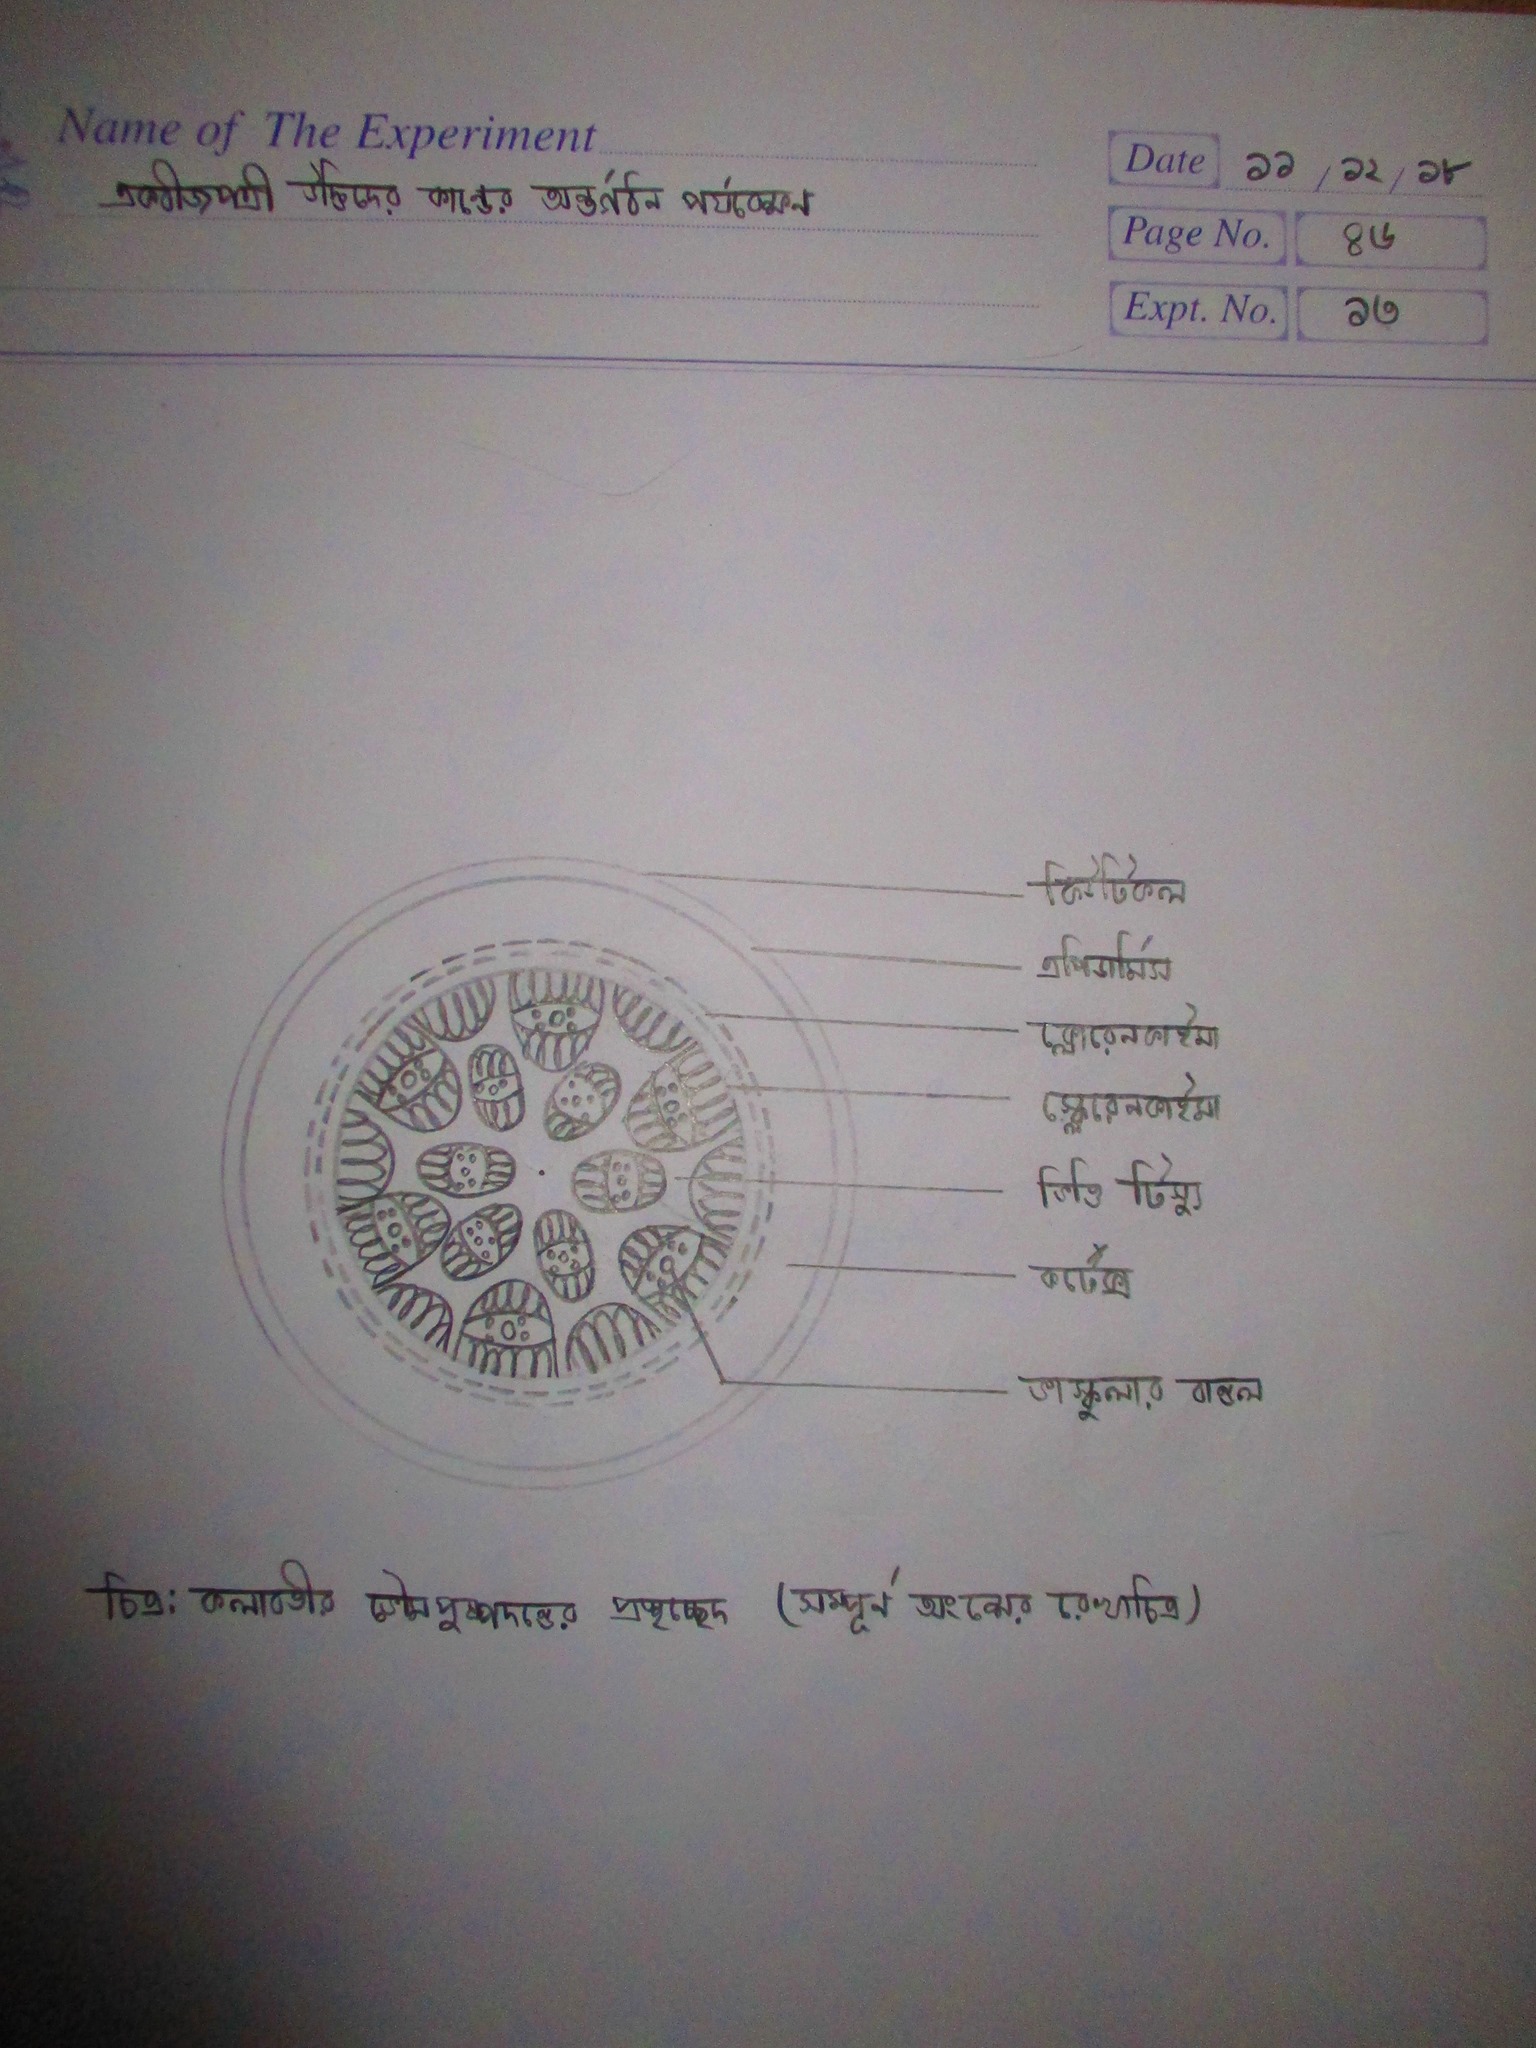 Name of The Experiment
একবীজপত্রী উদ্ভিদের কান্ডের অন্তর্গঠন পর্যবেক্ষন
Date ১১ / ১২ / ১৮
Page No. ৪৬
Expt. No. ১৩
কিউটিকল
এপিডার্মিস
ক্লোরেনকাইমা
স্ক্লেরেনকাইমা
ভিত্তি টিস্যু
কর্টেক্স
ভাস্কুলার বান্ডল
চিত্র: কলাবতীর ভৌমপুষ্পদন্ডের প্রস্থচ্ছেদ (সম্পূর্ন অংশের রেখাচিত্র)